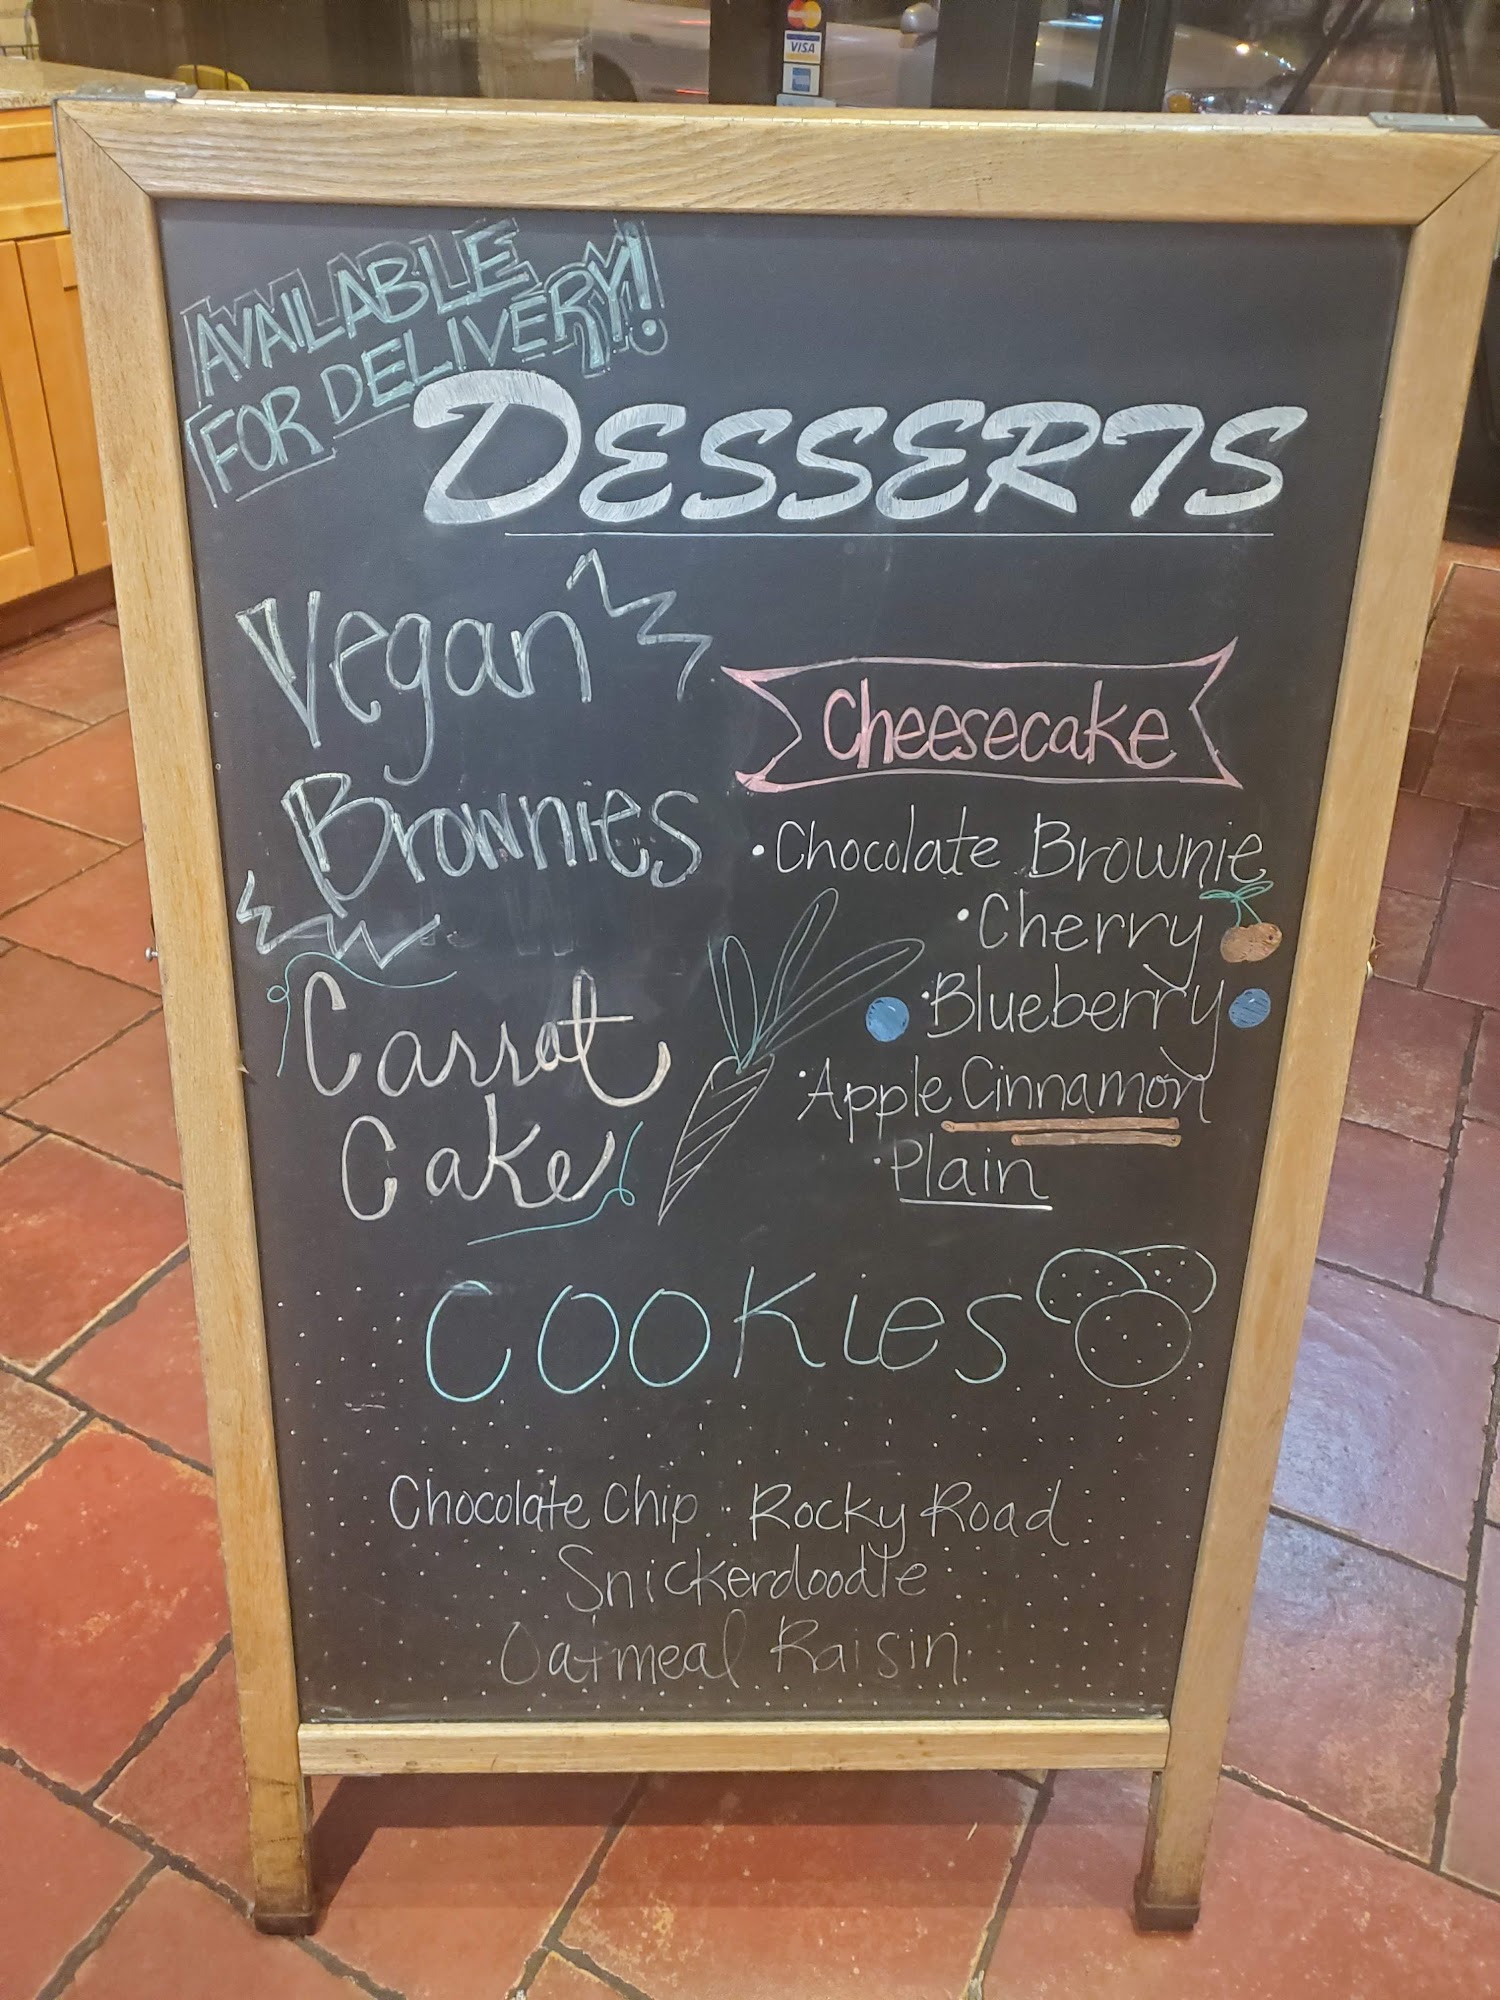 VISA
AVAILABLE
FOR DELIVERY!
DESSERTS
Vegan
Brownies
Carrot
Cake
Cheesecake
• Chocolate Brownie
• Cherry
• Blueberry
• Apple Cinnamon
• Plain
COOKIES
Chocolate Chip Rocky Road
Snickerdoodle
Oatmeal Raisin